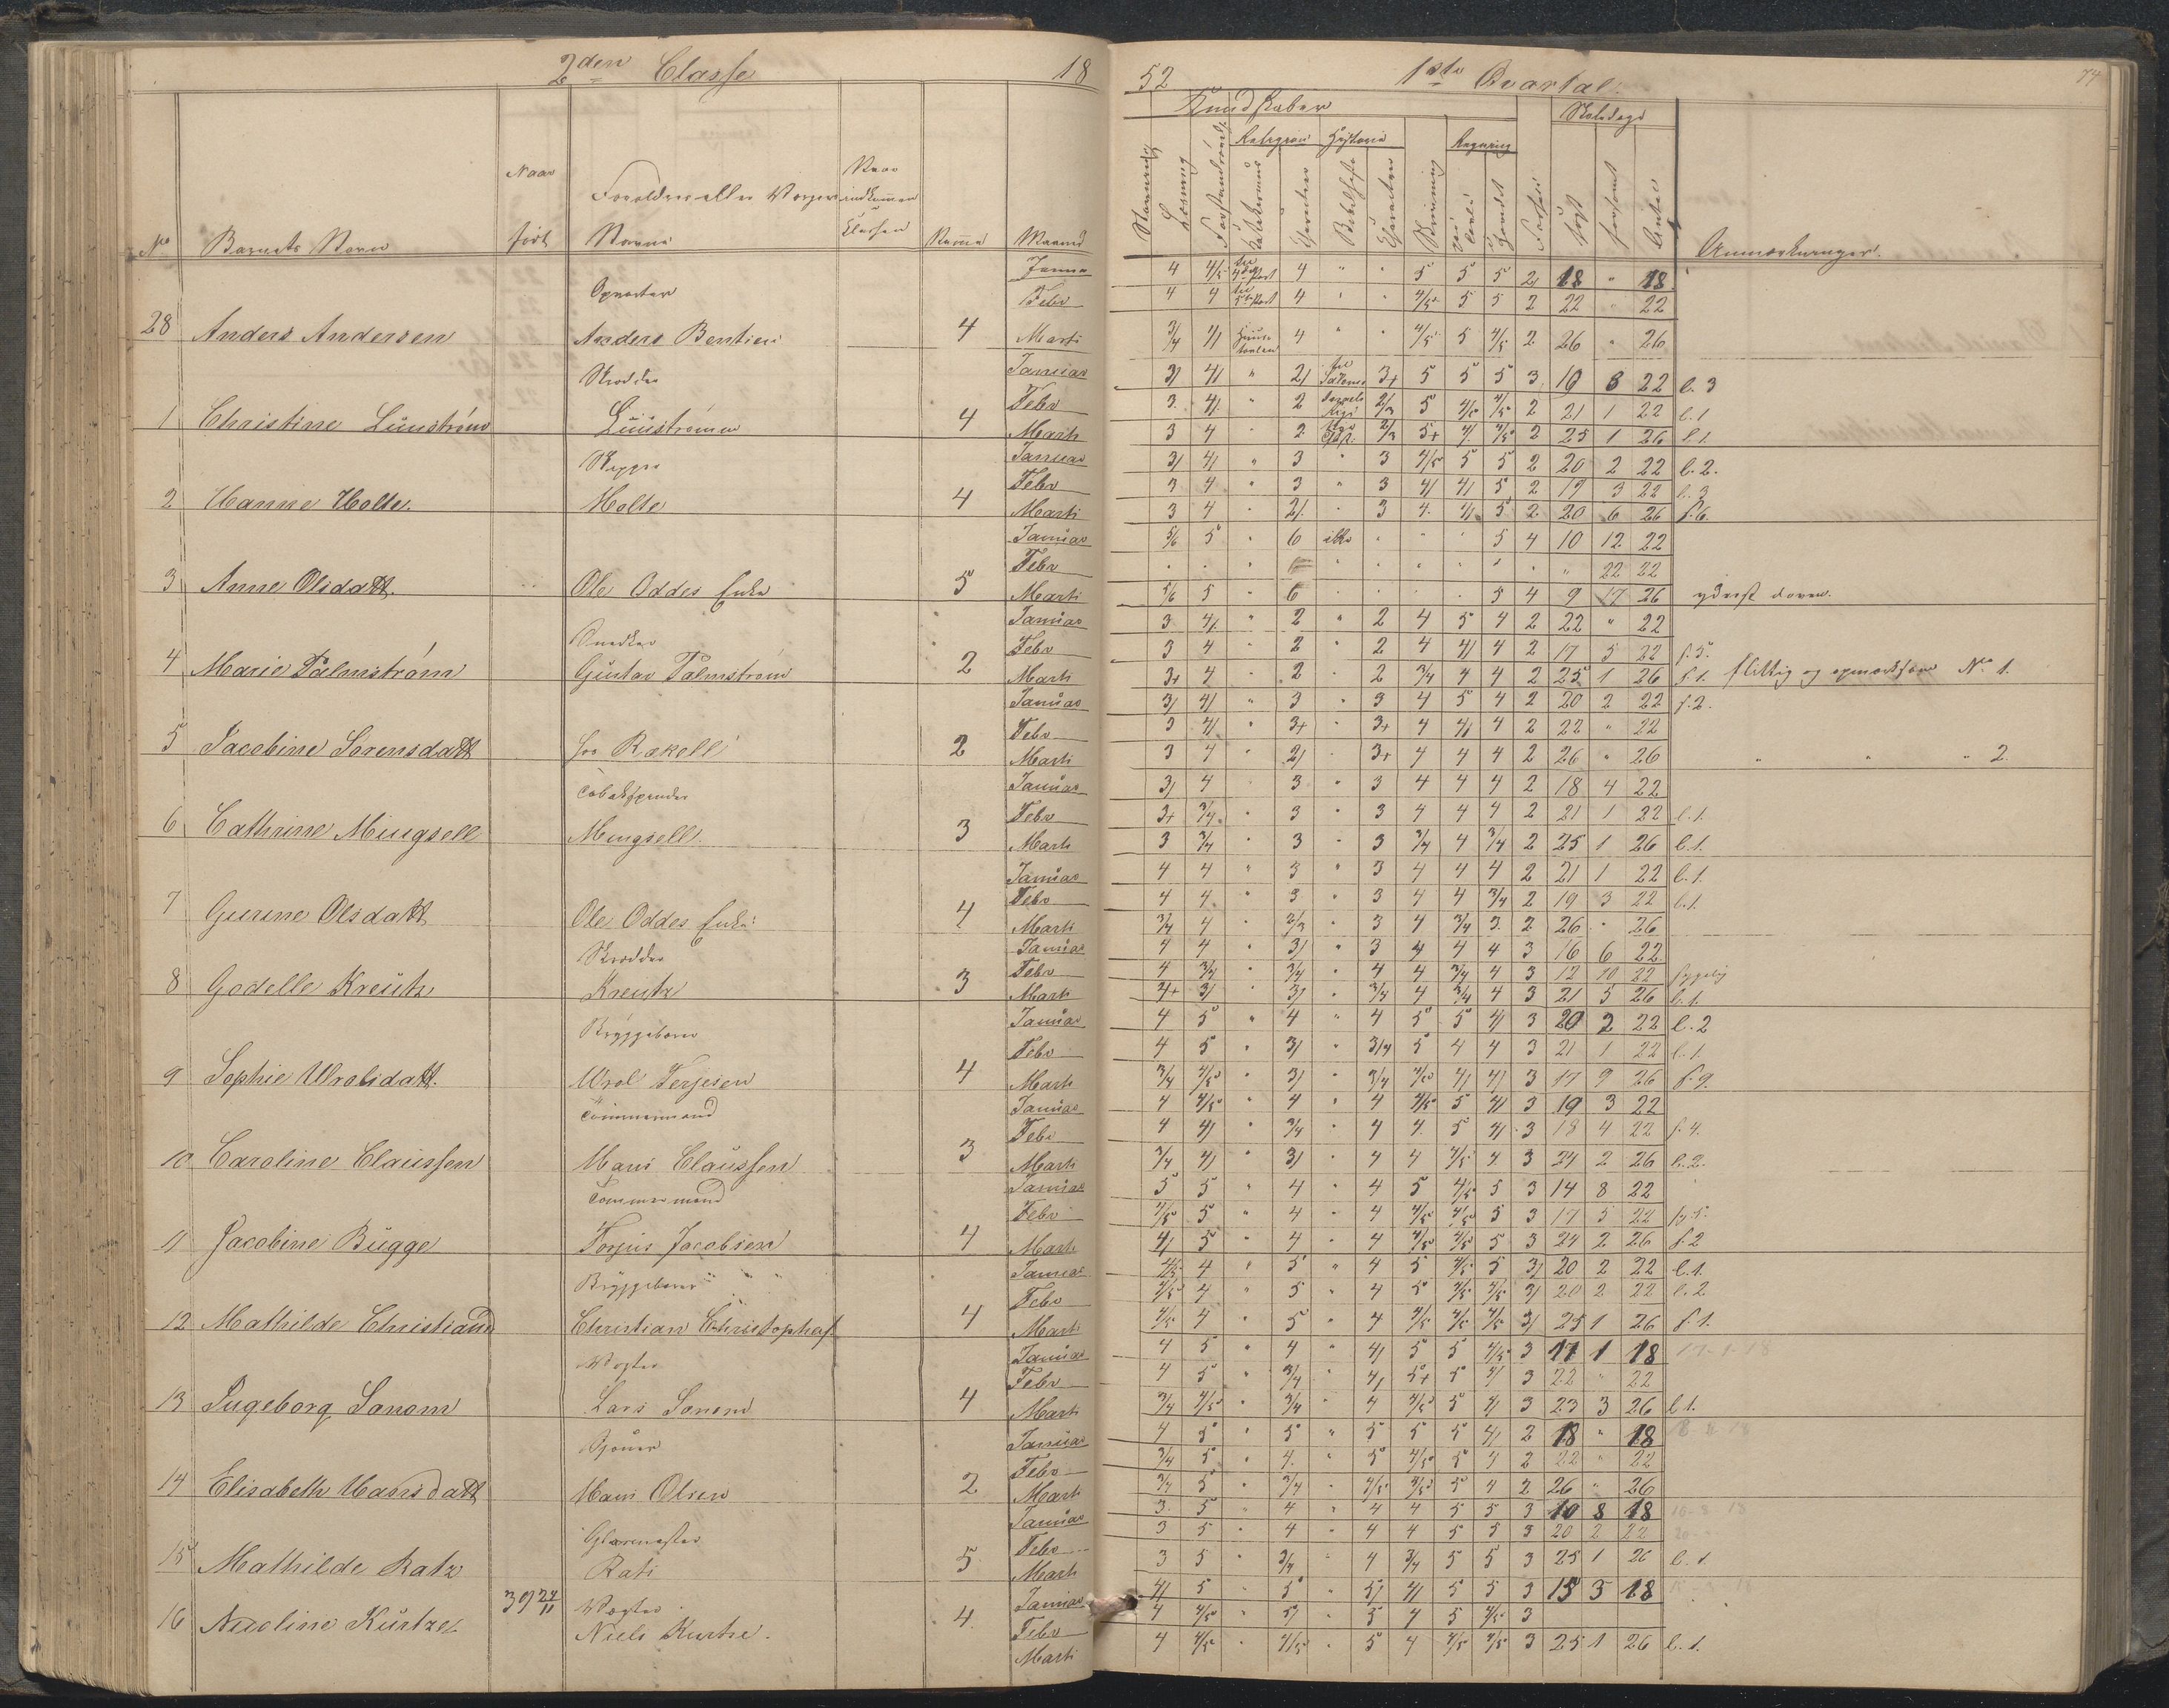 2den Classe 18
52 1ste Qvartal. 74
Kundskaber Skoledage
Religion Historie Regning
No Barnets Navn Naar født Forældres eller Værges Navne Naar indkommen i Classen Maaned
Stavning Læsning Skrivning Anmærkninger.
Janua 4 4/5 4 " " 5 5 5 2 18 " 18
Opvarter Febr 4 4 4 " " 4/5 5 5 2 22 " 22
28 Anders Andersen Anders Bentsen 4 Marti 3/4 4/ 4 " " 4/5 5 4/5 2 26 " 26
Januar 3/ 4/ " 2/ 3+ 5 5 5 3 8 22 l. 3
Skrædder Febr 3 4/ " 2 2/3 5 4/5 4/5 2 21 1 22 l. 1
1 Christine Lünström Lünströmm 4 Marti 3 4 " 2 2/3 5+ 4/ 4/5 2 25 1 26 l. 1.
Januar 3/ 4/ " 3 " 3 4/5 5 5 2 20 2 22 l. 2.
Skipper Febr 3 4 " 3 " 3 4/ 4/ 5 2 19 3 22 l. 3
2 Hanne Holte. Holte 4 Marti 3 4 " 2/ " 3 4 4/ 5 2 20 6 26 f. 6.
Januar 5/6 5 " 6 ikke " " " 5 4 10 12 22
Febr " " " " " " " " " " 22 22
3 Anne Olsdatt. Ole Oddes Enke 5 Marti 5/6 5 " 6 " " " " 5 4 9 17 26 yderst doven.
Januar 3 4/ " 2 " 2 4 5 4 2 22 " 22
Snedker Febr 3 4 " 2 " 2 4 4/ 4 2 17 5 22 f. 5.
4 Marie Palmström Gustav Palmström 2 Marti 3+ 4 " 2 " 2 3/4 4 4 2 25 1 26 f. 1. flittig og opmærksom No 1.
Januar 3/ 4/ " 3 " 3 4 5 4 2 20 2 22 f. 2.
Febr 3 4/ " 3+ " 3+ 4 4/ 4 2 22 " 22
5 Jacobine Sørensdatt hos Rakell 2 Marti 3 4 " 2/ " 3+ 4 4 4 2 26 " 26 " " " 2.
Januar 3/ 4 3 " 3 4 4 4 2 18 4 22
Tobakspinder Febr 3+ 3/4 " 3 " 3 4 4 4 2 21 1 22 l. 1.
6 Cathrine Mingsell Mingsell 3 Marti 3 3/4 " 3 " 3 3/4 4 3/4 2 25 1 26 l. 1.
Januar 4 4 " 3 " 3 4 4 4 2 21 1 22 l. 1.
Febr 4 4 " 3 " 3 4 4 3/4 2 19 3 22 l. 1.
7 Gurine Olsdatt Ole Oddes Enke 4 Marti 3/4 4 " 2/3 " 3 4 3/4 3 2 26 " 26
Januar 4 4 " 3/ " 3 4 4 4 3 16 6 22
Skrædder Febr 4 3/4 " 3/4 " 4 4 3/4 4 3 12 10 22 sygelig
8 Godelle Kreutz Kreutz 3 Marti 4+ 3/ " 3/ " 3/4 4 3/4 4 3 21 5 26 l. 1.
Januar 4 5 " 4 " 4 5 5 4/ 3 20 2 22 l. 2
Bryggeborer Febr 4 5 " 3/ " 3/4 5 4 4 3 21 1 22 l. 1.
9 Sophie Wrolsdatt. Wrol Terjesen 4 Marti 3/4 4/5 " 3/ " 3/4 4/5 4/ 4/ 3 17 9 26 f. 9.
Januar 4 4/5 " 4 " 4 4/5 5 4/ 3 19 3 22
Tømmermand Febr 4 4/ " 3/4 " 4 4 5 4/ 3 18 4 22 f. 4.
10 Caroline Claussen Hans Claussen 3 Marti 3/4 4/ " 3/ " 4 4 4/5 4 3 24 2 26 l. 2.
Januar 5 5 " 4 " 4 5 4/5 5 3 14 8 22
Tømmermand Febr 4/5 5 " 4 " 4 4/5 4/5 5 3 17 5 22 f. 5.
11 Jacobine Bugge Torjus Jacobsen 4 Marti 4/ 5 " 4 " 4 4/5 4/5 5 3 24 2 26 f. 2
Januar 4/5 4 " 5 " 4 5 4/5 5 3/ 20 2 22 l. 1.
Bryggeborer Febr 4/5 4 " 5 " 4 5 4/5 4/5 3/ 20 2 22 l. 2
12 Mathilde Christiand Christian Christophers 4 Marti 4/5 4 " 5 " 4 4/5 4/5 4/5 3/ 25 1 26 f. 1.
Januar 4 5 " 4 " 4/ 5 5 4/5 3 17 1 18 17-1-18
Vægter Febr 4 5 " 3/4 " 4/ 5+ 5 4/ 3 22 " 22
13 Ingeborg Sonom Lars Sonom 4 Marti 3/4 4/5 " 3/4 " 4 4/5 5 4/ 3 23 3 26 l. 1.
Januar 4 5 " 5 " 5 5 5 4/ 2 18 " 18
Febr 3/4 5 " 4 " 5 4/5 5 4 2 22 " 22
14 Elisabeth Hansdatt Hans Olsen 2 Marti 3/4 5 " 3/4 " 4/5 4/5 5 4 2 26 " 26
Januar 3 5 " 4 " 4 4 5 5 3 10 8 18
Glarmester Febr 3 5 " 4 " 4 4 5 5 3 20 2 22
15 Mathilde Ratz Rats 5 Marti 3 5 " 3/4 " 4 3/4 5 5 3 25 1 26 l. 1.
Januar 4/ 5 " 5 " 5/ 4/ 5 5 3 15 3 18
39 24/11 Vægter Febr 4 4/5 " 5/ " 5 4 5 4/5 3
16 Nicoline Kürtze Niels Kurtze. 4 Marti 4 4/5 " 4/5 " 5 4 4/5 4/5 3 25 1 26 l. 1.